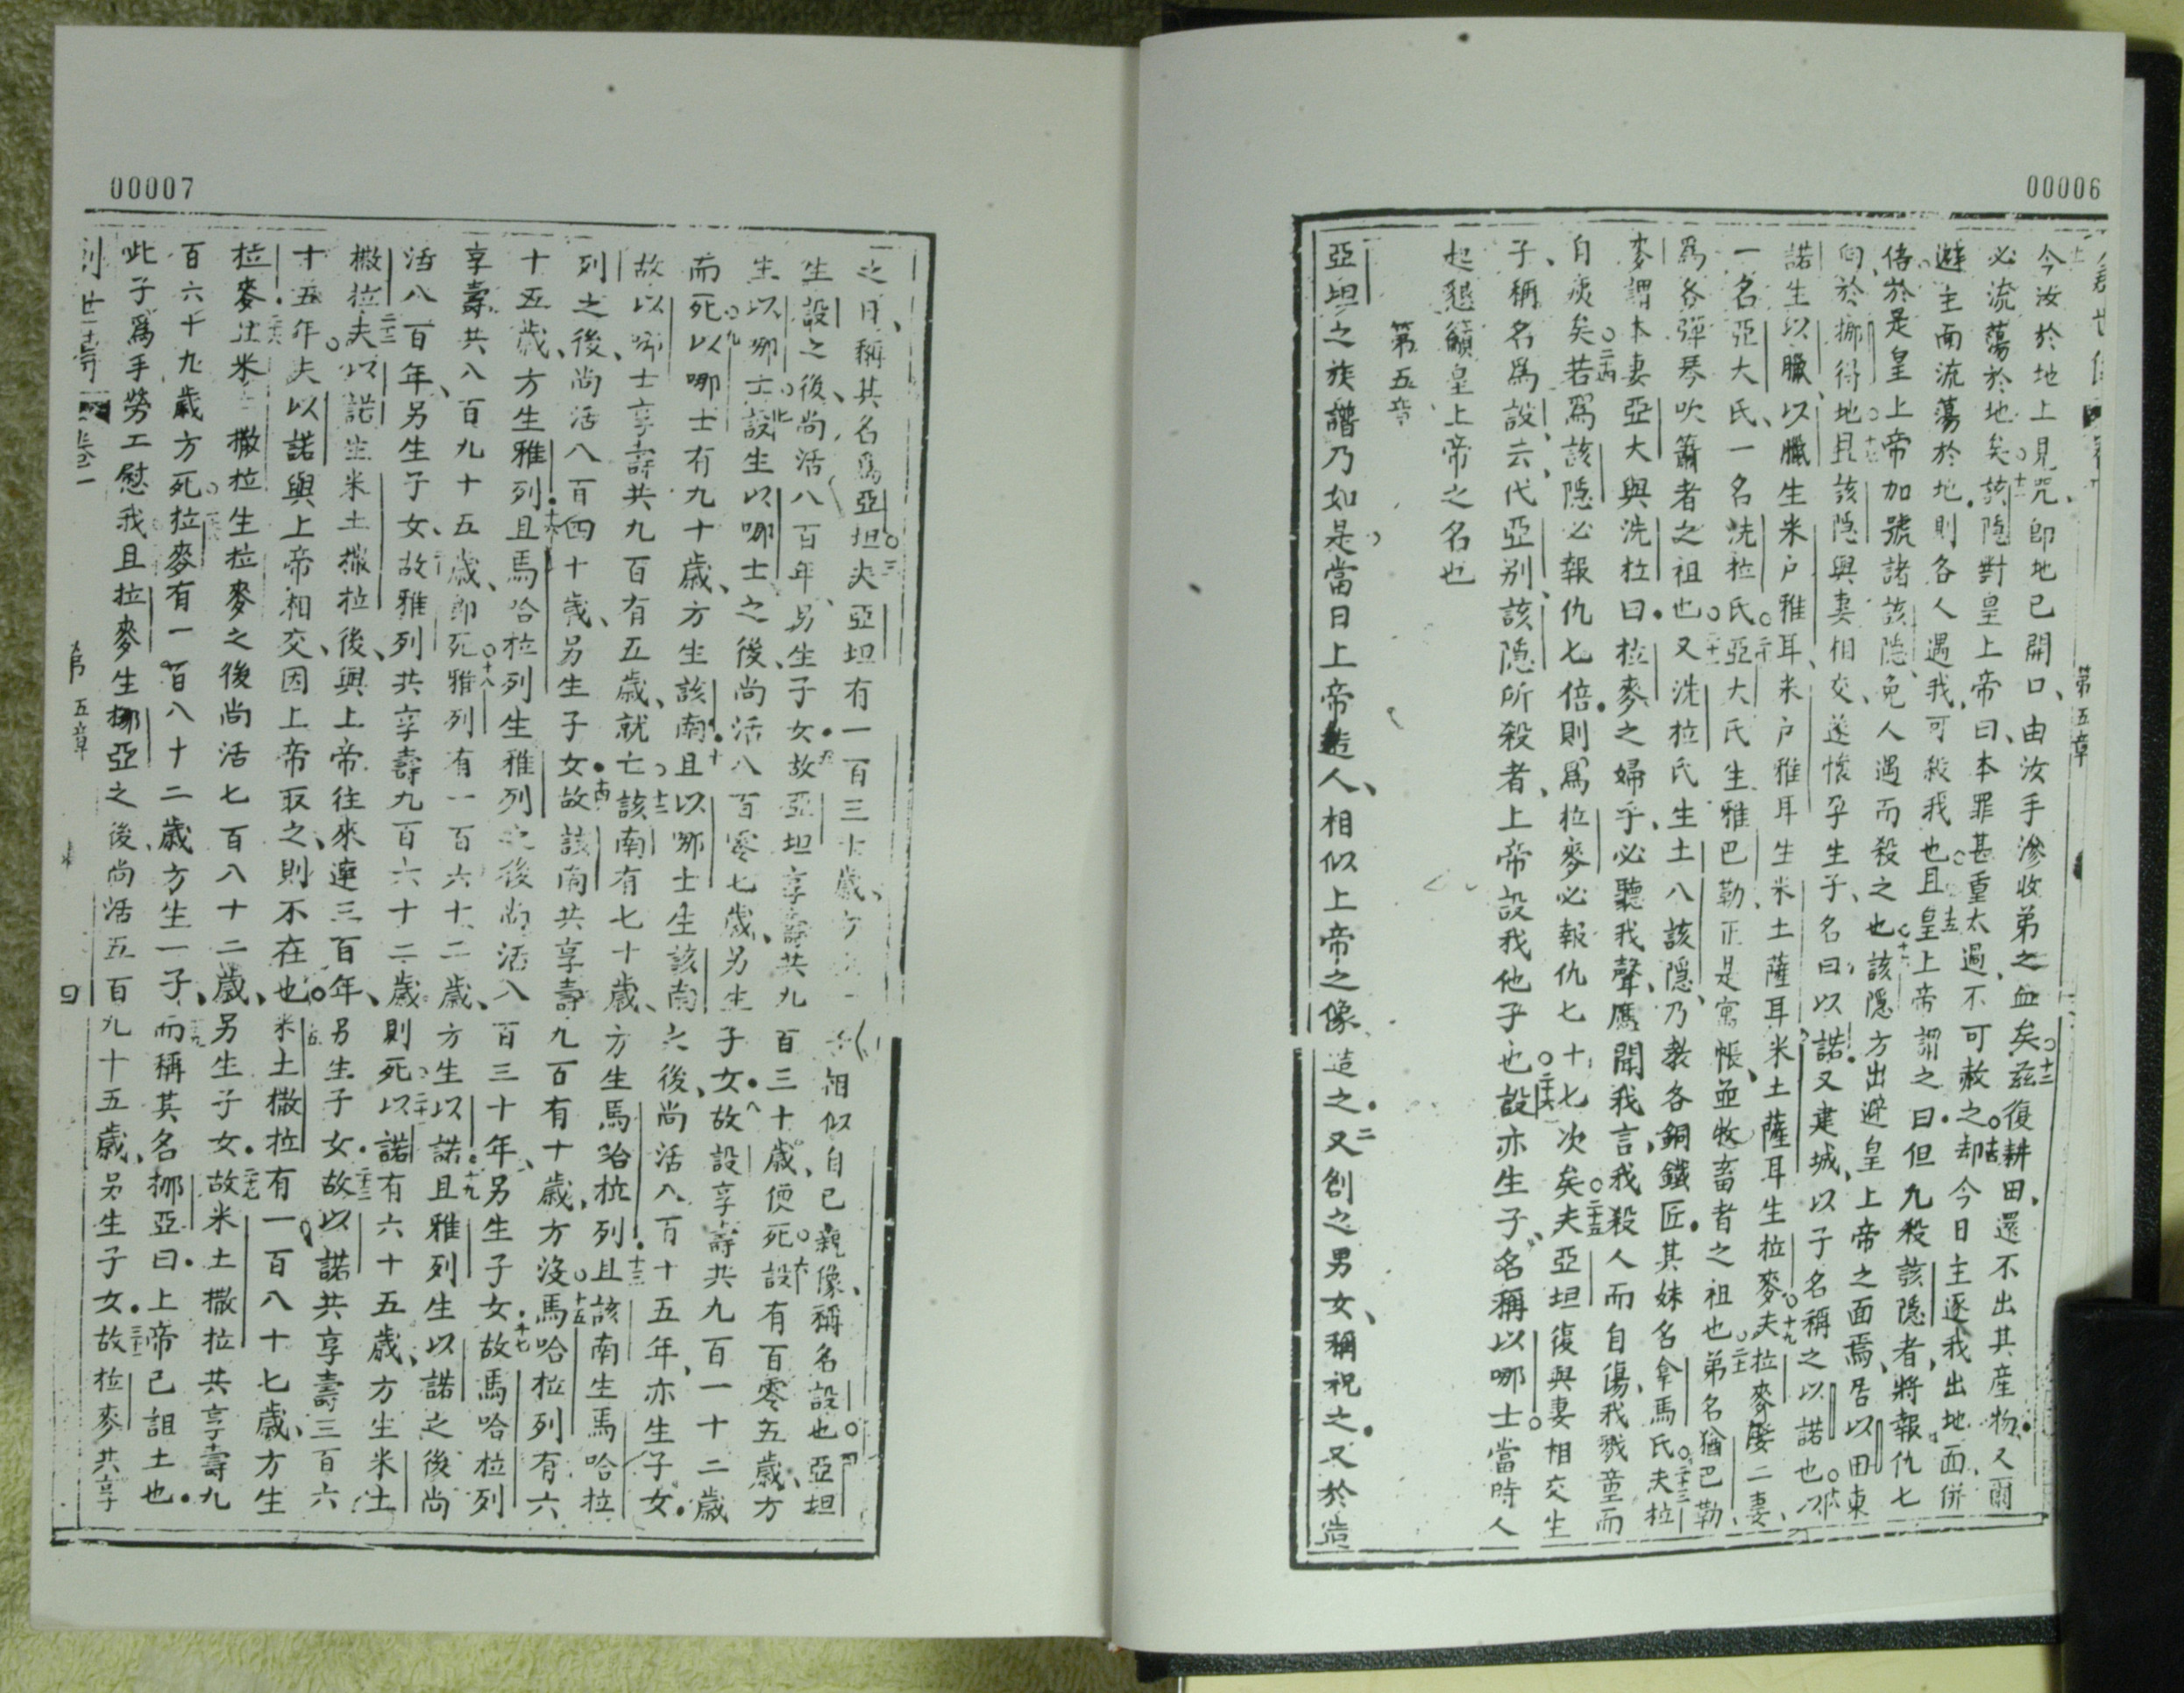 00006
第五章
今汝於地上見咒卽地已開口、由汝手滲收弟之血矣○十二茲復耕田、還不出其産物又爾
必流蕩於地矣○十三該隱對皇上帝曰、本罪甚重太過、不可赦之○十四却今日主逐我出地面、併
避主面流蕩於地、則各人遇我、可殺我也○十五且皇上帝謂之曰但凡殺該隱者、將報仇七
倍、於是皇上帝加號諸該隱、免人遇而殺之也○十六該隱方出避皇上帝之面焉、居以田東
向於挪得地○十七且該隱與妻相交、遂懷孕生子、名曰以諾又建城、以子名稱之以諾也○十八以
諾生以臘、以臘生米戶雅耳、米戶雅耳生米土薩耳米土薩耳生拉麥○十九夫拉麥娶二妻、
一名亞大氏、一名洗拉氏○二十亞大氏生雅巴勒正是寓帳、並牧畜者之祖也○二十一弟名猶巴勒
爲各彈琴吹簫者之祖也○二十二又洗拉氏生土八該隱、乃教各銅鐵匠其妹名拿馬氏○二十三夫拉
麥謂本妻亞大與洗拉曰拉麥之婦乎、必聽我聲、應聞我言、我殺人而自傷、我戮童而
自痍矣○二十四若爲該隱必報仇七倍則爲拉麥必報仇七十七次矣○二十五夫亞坦復與妻相交生
子、稱名爲設、云、代亞别、該隱所殺者、上帝設我他子也○二十六設亦生子、名稱以哪士○當時人
起懇籲皇上帝之名也
第五章
亞坦之族譜乃如是、當日上帝造人、相似上帝之像造之二又創之男女、稱祝之又於造
00007
之日、稱其名爲亞坦○三夫亞坦有一百三十歲、方 相似自己親像、稱名設也○四亞坦
生設之後、尚活八百年、另生子女五故亞坦享壽共九百三十歲、便死○六設有百零五歲、方
生以哪士○七設生以哪士之後、尚活八百零七歲、另生子女八故設享壽共九百一十二歲
而死○九以哪士有九十歲、方生該南十且以哪士生該南之後、尚活八百十五年、亦生子女
故以哪士享壽共九百有五歲、就亡○十二該南有七十歲、方生馬哈拉列十三且該南生馬哈拉
列之後、尚活八百四十歲、另生子女十四故該南共享壽九百有十歲、方沒○十五馬哈拉列有六
十五歲、方生雅列十六且馬哈拉列生雅列之後尚活八百三十年、另生子女十七故馬哈拉列
享壽共八百九十五歲、卽死○十八雅列有一百六十二歲、方生以諾十九且雅列生以諾之後尚
活八百年、另生子女、二十故雅列共享壽九百六十二歲則死○二十一以諾有六十五歲、方生米土
撒拉○二十二夫以諾生米土撒拉後、與上帝往來連三百年、另生子女二十三故以諾共享壽三百六
十五年二十四夫以諾與上帝相交、因上帝取之、則不在也○二十五米土撒拉有一百八十七歲、方生
拉麥二十六米土撒拉生拉麥之後尚活七百八十二歲、另生子女二十七故米土撒拉共享壽九
百六十九歲方死○二十八拉麥有一百八十二歲、方生一子、二十九而稱其名挪亞曰上帝已詛土也
此子爲手勞工慰我三十且拉麥生挪亞之後、尚活五百九十五歲、另生子女三十一故拉麥共享
創世書 卷一
第五章
四